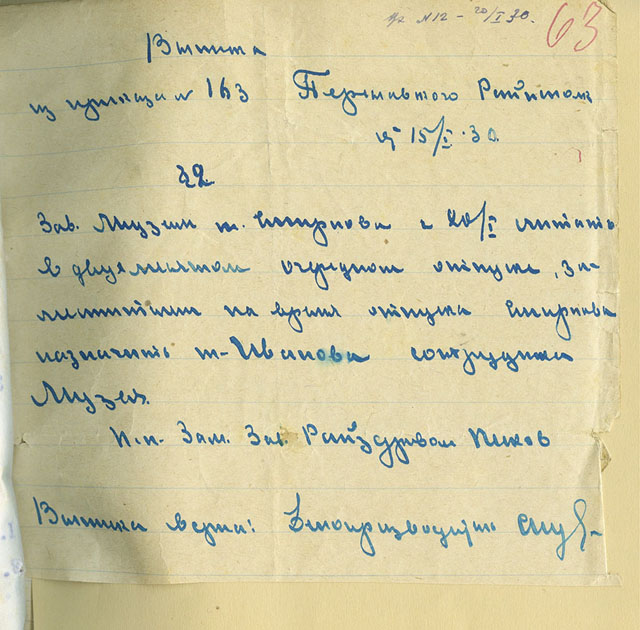 №12 - 20/I 30.
63
Выписка
из приказа № 163 Переславского Райисполк
от 15/I-30.
§2.
Зав. Музеем т. Смирнова с 20/I считать
в двухмесячном очередном отпуске, за-
местителем на время отпуска Смирнова
назначить т-Иванова сотрудника
Музея.
п.п. Зам. Зав. Райздравом
Выписка верна: Делопроизводитель